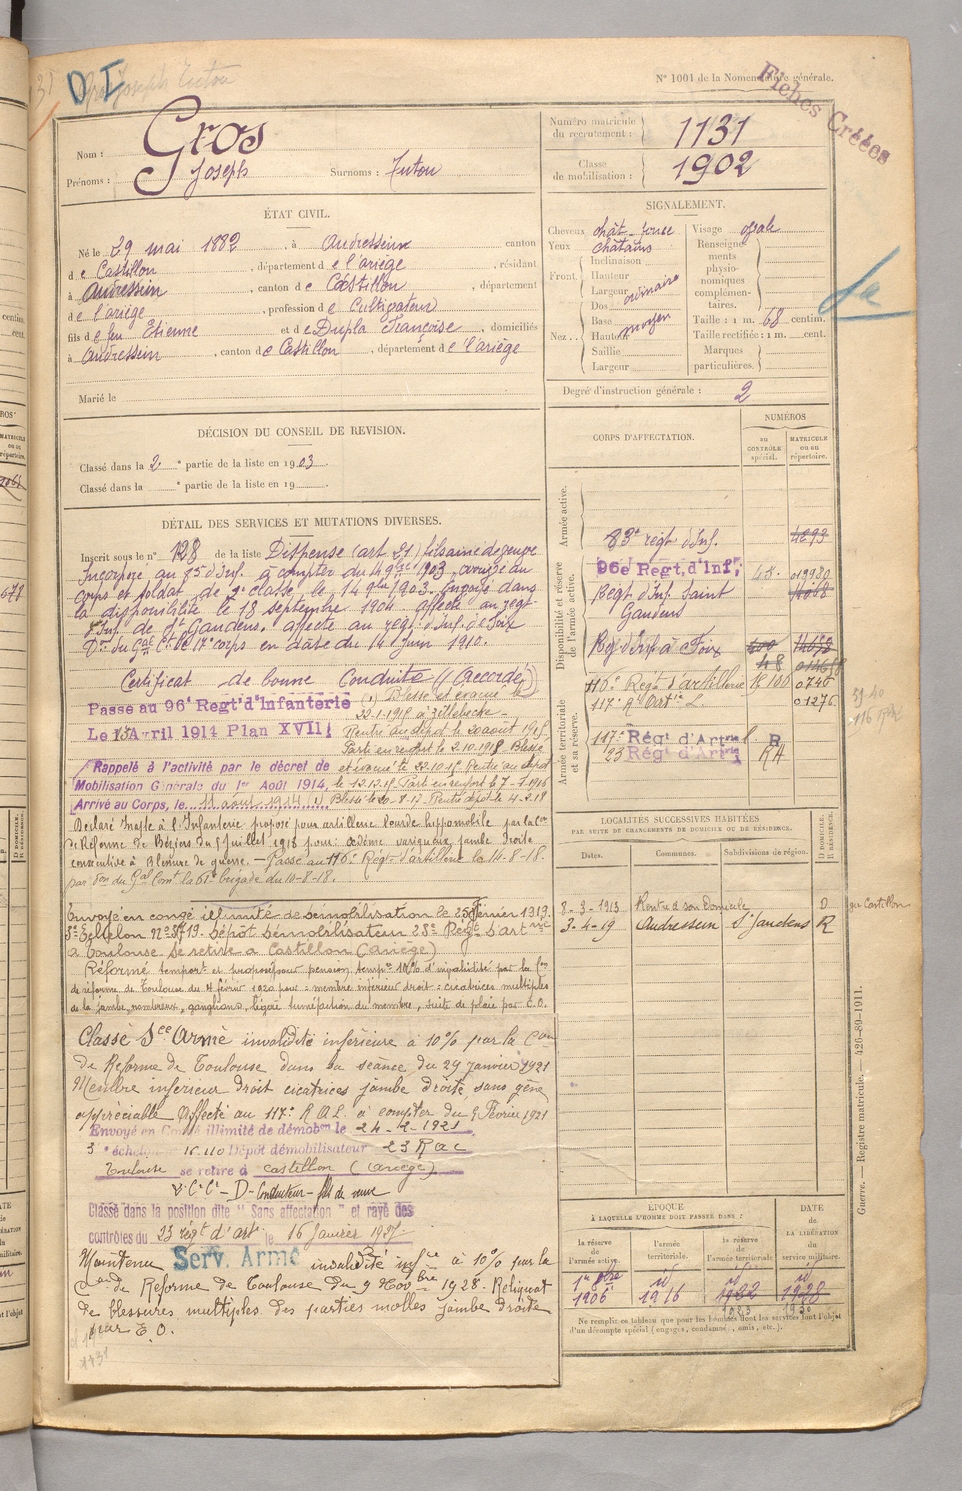 D I
Gros Joseph Tutou
N° 1001 de la Nomenclature générale.
Fiches Créées
Nom : Gros
Prénoms : Joseph Surnoms : Tutou
Numéro matricule du recrutement : 1131
Classe de mobilisation : 1902
ÉTAT CIVIL.
Né le 29 mai 1882, à Andressein canton
de Castillon, département de l'ariège, résidant
à Andressein, canton de Castillon, département
de l'ariège, profession de Cultivateur
fils de feu Etienne et de Dupla Françoise, domiciliés
à Andressein, canton de Castillon, département de l'ariège
Marié le
SIGNALEMENT.
Cheveux chât- foncé
Yeux châtains
Front. Inclinaison
Hauteur
Largeur ordinaire
Nez. Dos
Base moyen
Hauteur
Saillie
Largeur
Visage ovale
Renseignements physionomiques complémentaires.
Taille : 1 m. 68 centim.
Taille rectifiée : 1 m. cent.
Marques particulières.
Degré d'instruction générale : 2
DÉCISION DU CONSEIL DE REVISION.
Classé dans la 2e partie de la liste en 1903
Classé dans la e partie de la liste en 19
DÉTAIL DES SERVICES ET MUTATIONS DIVERSES.
Inscrit sous le n° 128 de la liste Dispensé (art. 21) fils aîné de veuve
Incorporé au 83e d'Inf. à compter du 14 9bre 1903, arrivé au
corps et soldat de 2e classe, le 14 9bre 1903. Envoyé dans
la disponibilité le 18 septembre 1904. affecté au régt
d'Inf. de St Gaudens. affecté au régt d'Inf. de Foix
Don du Gal Ct le 17e corps en date du 14 Juin 1910.
Certificat de bonne Conduite "Accordé"
Passé au 96e Regt d'Infanterie
Le 13 Avril 1914 Plan XVII
Rappelé à l'activité par le décret de
Mobilisation Générale du 1er Août 1914,
Arrivé au Corps, le 11 aout 1914 (1)
(1) Blessé et évacué le
22-1-1915 à Zillebecke.
Rentré au dépôt le 20 août 1915.
Parti en renfort le 2.10.1915 Blessé
et évacué le 22-10-15 Rentré au dépôt
le 12.12.15 Parti en renfort le 7-1-1916
Blessé le 20-8-17 Rentré dépôt le 4-2-18
Déclaré Inapte à l'Infanterie proposé pour artillerie lourde hippomobile par la Con
de Réforme de Béziers du 5 Juillet 1918 pour : œdème variqueux jambe droite
consécutive à Blessure de guerre. — Passé au 116e Régt d'artillerie le 14-8-18.
par Don du Gal Comt la 61e brigade du 10-8-18.
Envoyé en congé illimité de démobilisation le 25 Février 1919.
5e Echelon N° 3719. Dépôt démobilisateur 23e Régt d'artrie
à Toulouse se retire à Castillon (Ariège)
Réformé temport et proposé pour pension tempre 10% d'invalidité par la Con
de réforme de Toulouse du 4 février 1920 pour : membre inférieur droit : cicatrices multiples
de la jambe, nombreux, ganglions, légère tuméfaction du membre, suite de plaie par E.O.
Classé Sce Armé invalidité inférieure à 10% par la Con
de Réforme de Toulouse dans sa séance du 29 janvier 1921
Membre inférieur droit cicatrices jambe droite, sans gêne
appréciable. Affecté au 117e R.A.L. à compter du 9 Février 1921
Envoyé en Congé illimité de démobon le 24-2-1921
3e échel. n° 110 Dépôt démobilisateur 23 R a c
Toulouse se retire à Castillon (Ariège)
V.C.C - D - Conducteur - fils de veuve
Classé dans la position dite " Sans affectation " et rayé des
contrôles du 23 régt d'art. le 16 Janvier 1927.
Maintenu Serv. Armé invalidité infre à 10% par la
Con de Réforme de Toulouse du 9 Novbre 1928. Reliquat
de blessures multiples des parties molles jambe droite
par E.O.
1131
CORPS D'AFFECTATION.
NUMÉROS
au CONTRÔLE spécial.
MATRICULE ou au répertoire.
Armée active.
83e régt d'Inf. 4893
Disponibilité et réserve de l'armée active.
96e Regt, d'Inf, 48. 019980
Régt d'Inf. Saint
Gaudens
Rgt d'Inf à Foix
48
Armée territoriale et sa réserve.
116e Régt d'artillerie R 106 0746
117e Rt Artie L. 01276
117e Régt d'Artrie l. R
23 Régt d'Artrie RA
LOCALITÉS SUCCESSIVES HABITÉES
PAR SUITE DE CHANGEMENTS DE DOMICILE OU DE RÉSIDENCE.
Dates. Communes. Subdivisions de région. D DOMICILE. R RÉSIDENCE.
8-3-1913 Rentré à son Domicile D
3-4-19 Audressein St Gaudens R
gie Castillon
Guerre. — Registre matricule. — 426-89-1911.
ÉPOQUE
À LAQUELLE L'HOMME DOIT PASSER DANS :
la réserve de l'armée active.
l'armée territoriale.
la réserve de l'armée territoriale
DATE de LA LIBÉRATION du service militaire.
1er 8bre 1906
id 1916
id 1922
id 1928
1923
1930
Ne remplir ce tableau que pour les hommes dont les services font l'objet
d'un décompte spécial (engagés, condamnés, omis, etc.).